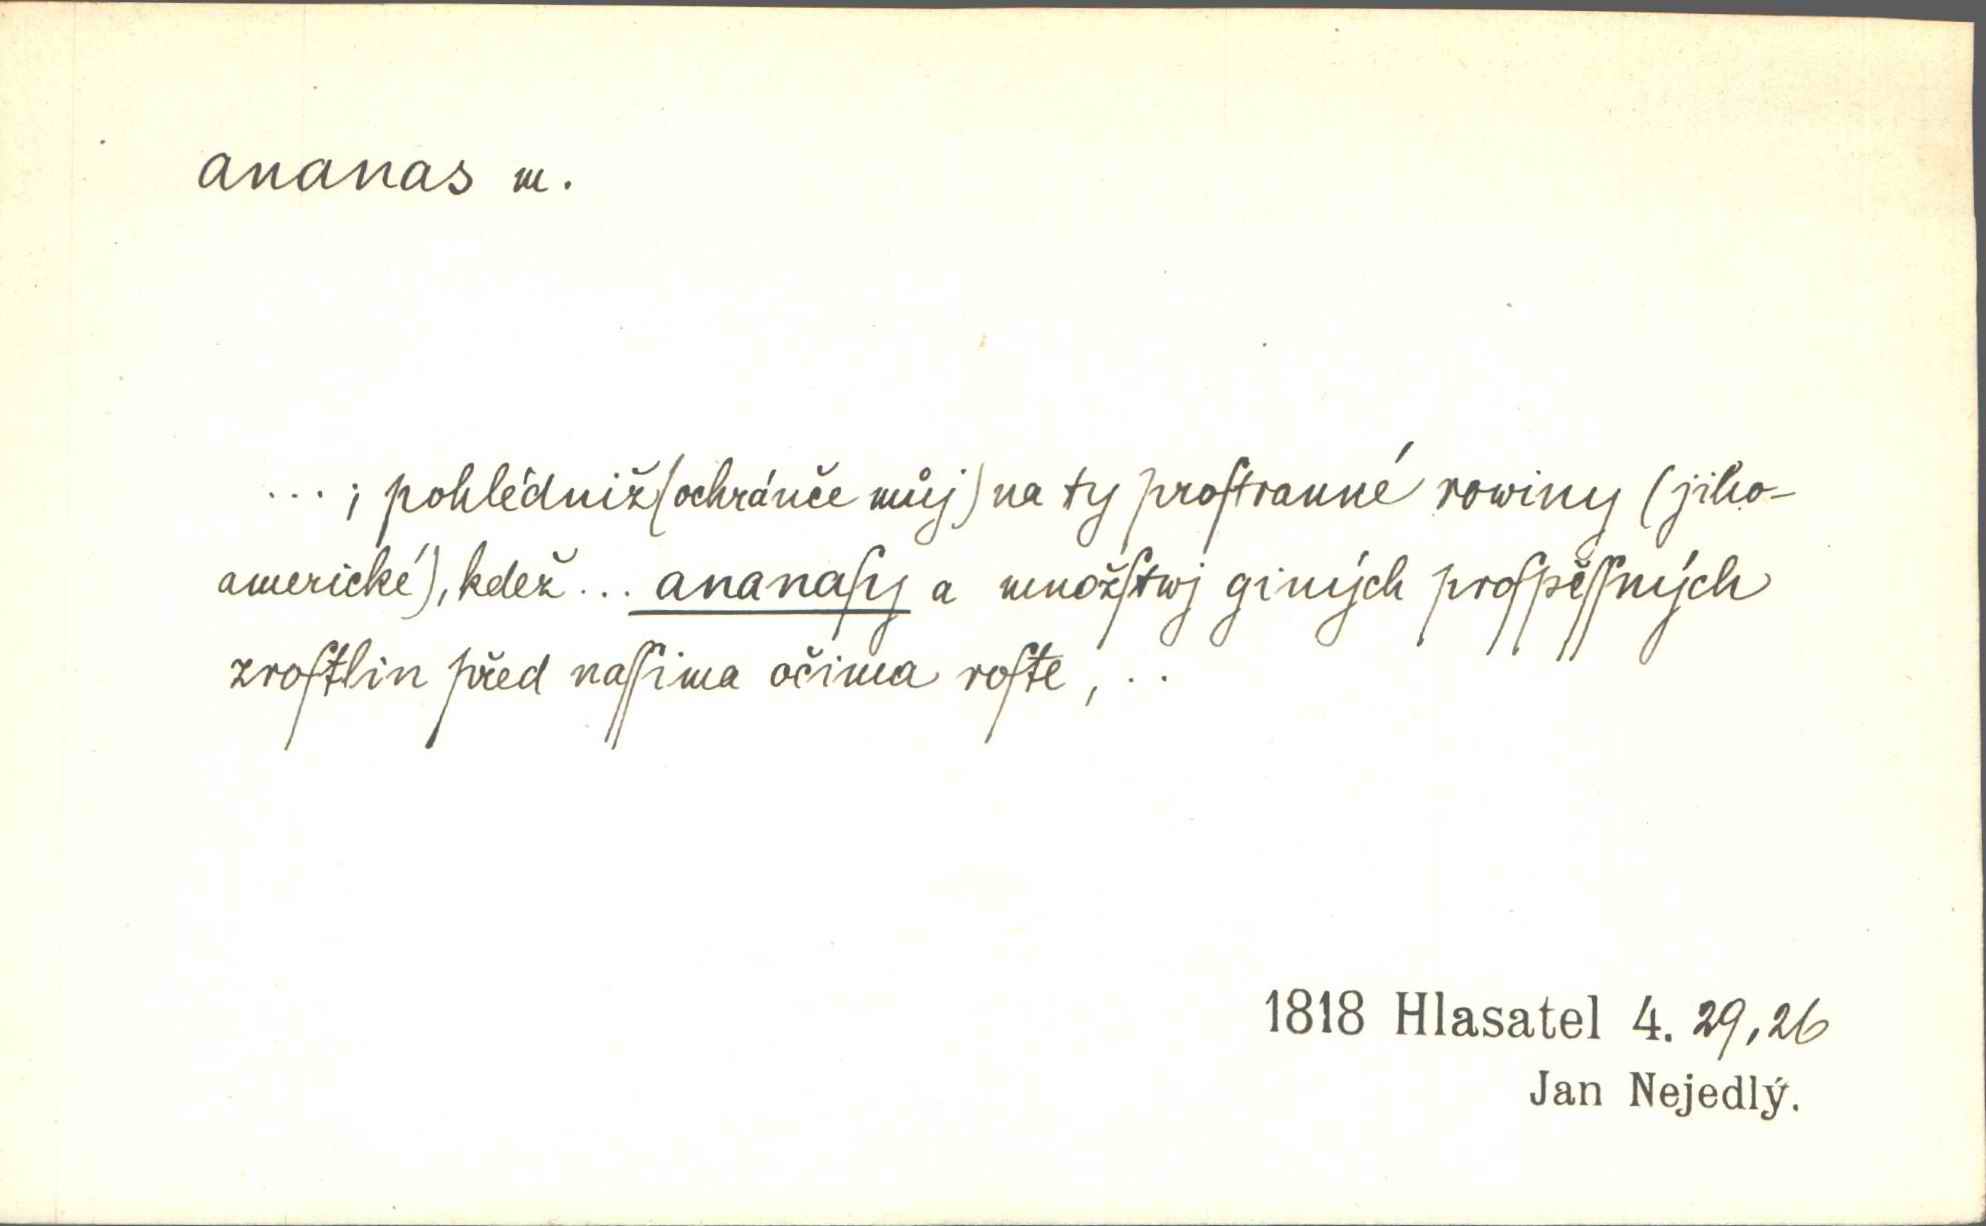 ananas m.
... ; pohlédniž (ochránče můj) na ty proſtranné rowiny (jiho-
americké), kdež ... ananaſy a množſtwj giných proſpěſſných
zroſtlin před naſſima očima roſte, ..
1818 Hlasatel 4. 29,26
Jan Nejedlý.